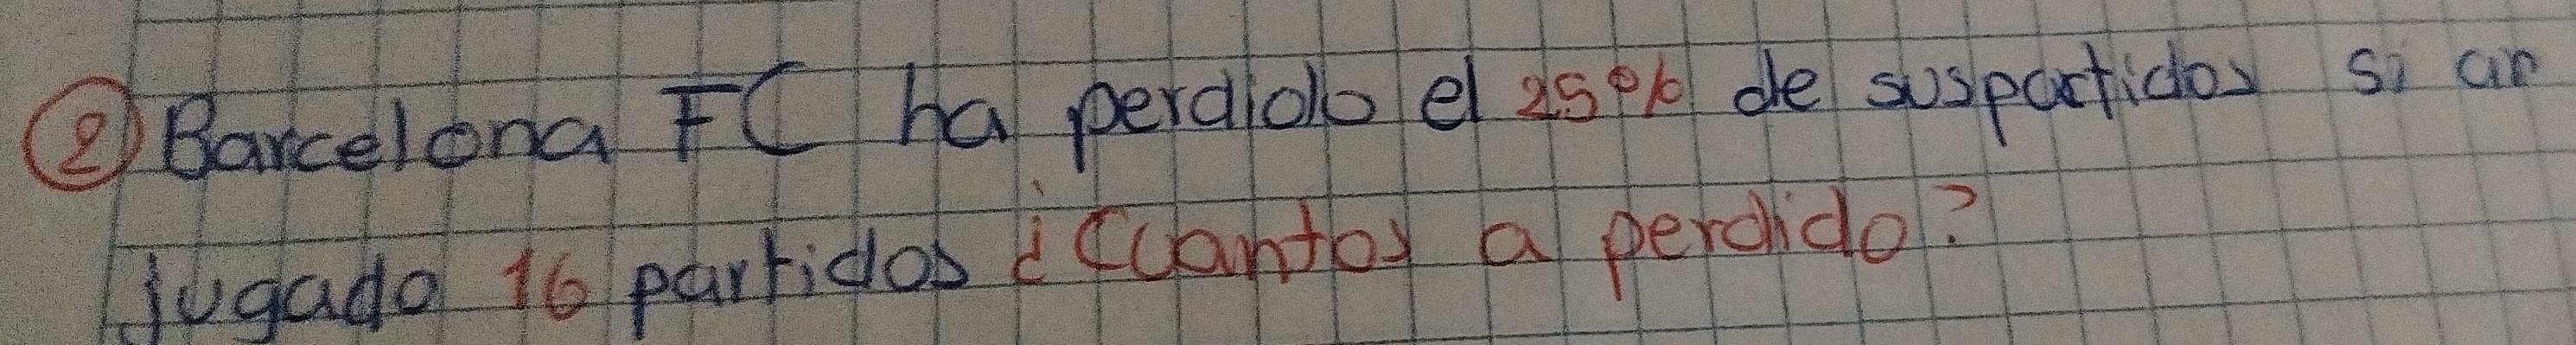 ② Barcelona FC ha perdido el 25% de sus partidos si an
jugado 16 partidos ¿Cuantos a perdido?